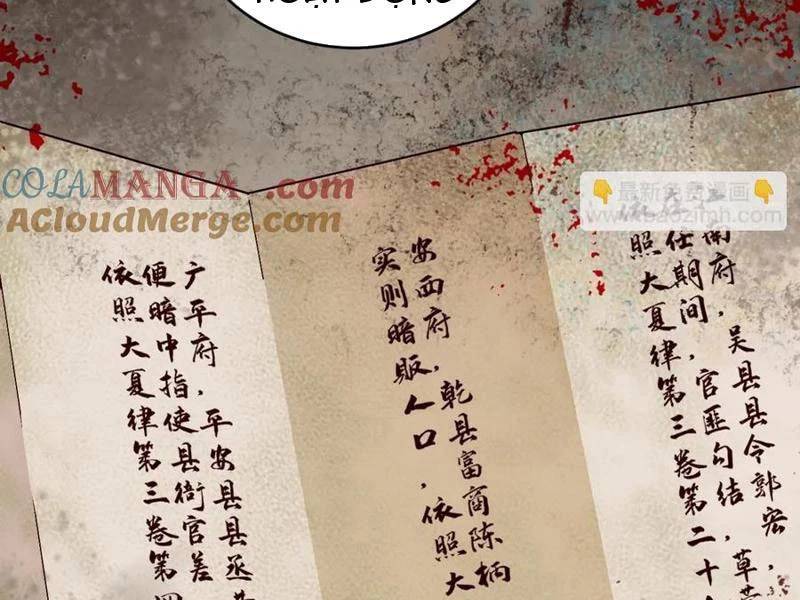 最新免费漫画
www.baozimh.com
COLAMANGA.com
ACloudMerge.com
南府，吴县县令郭宏，草
任期间，官匪勾结，
照大夏律，第三卷第二十
安西府，乾县富商陈柄
实则暗贩人口，依照大
广平府，平安县县丞
便暗中指使县衙官差
依照大夏律第三卷第